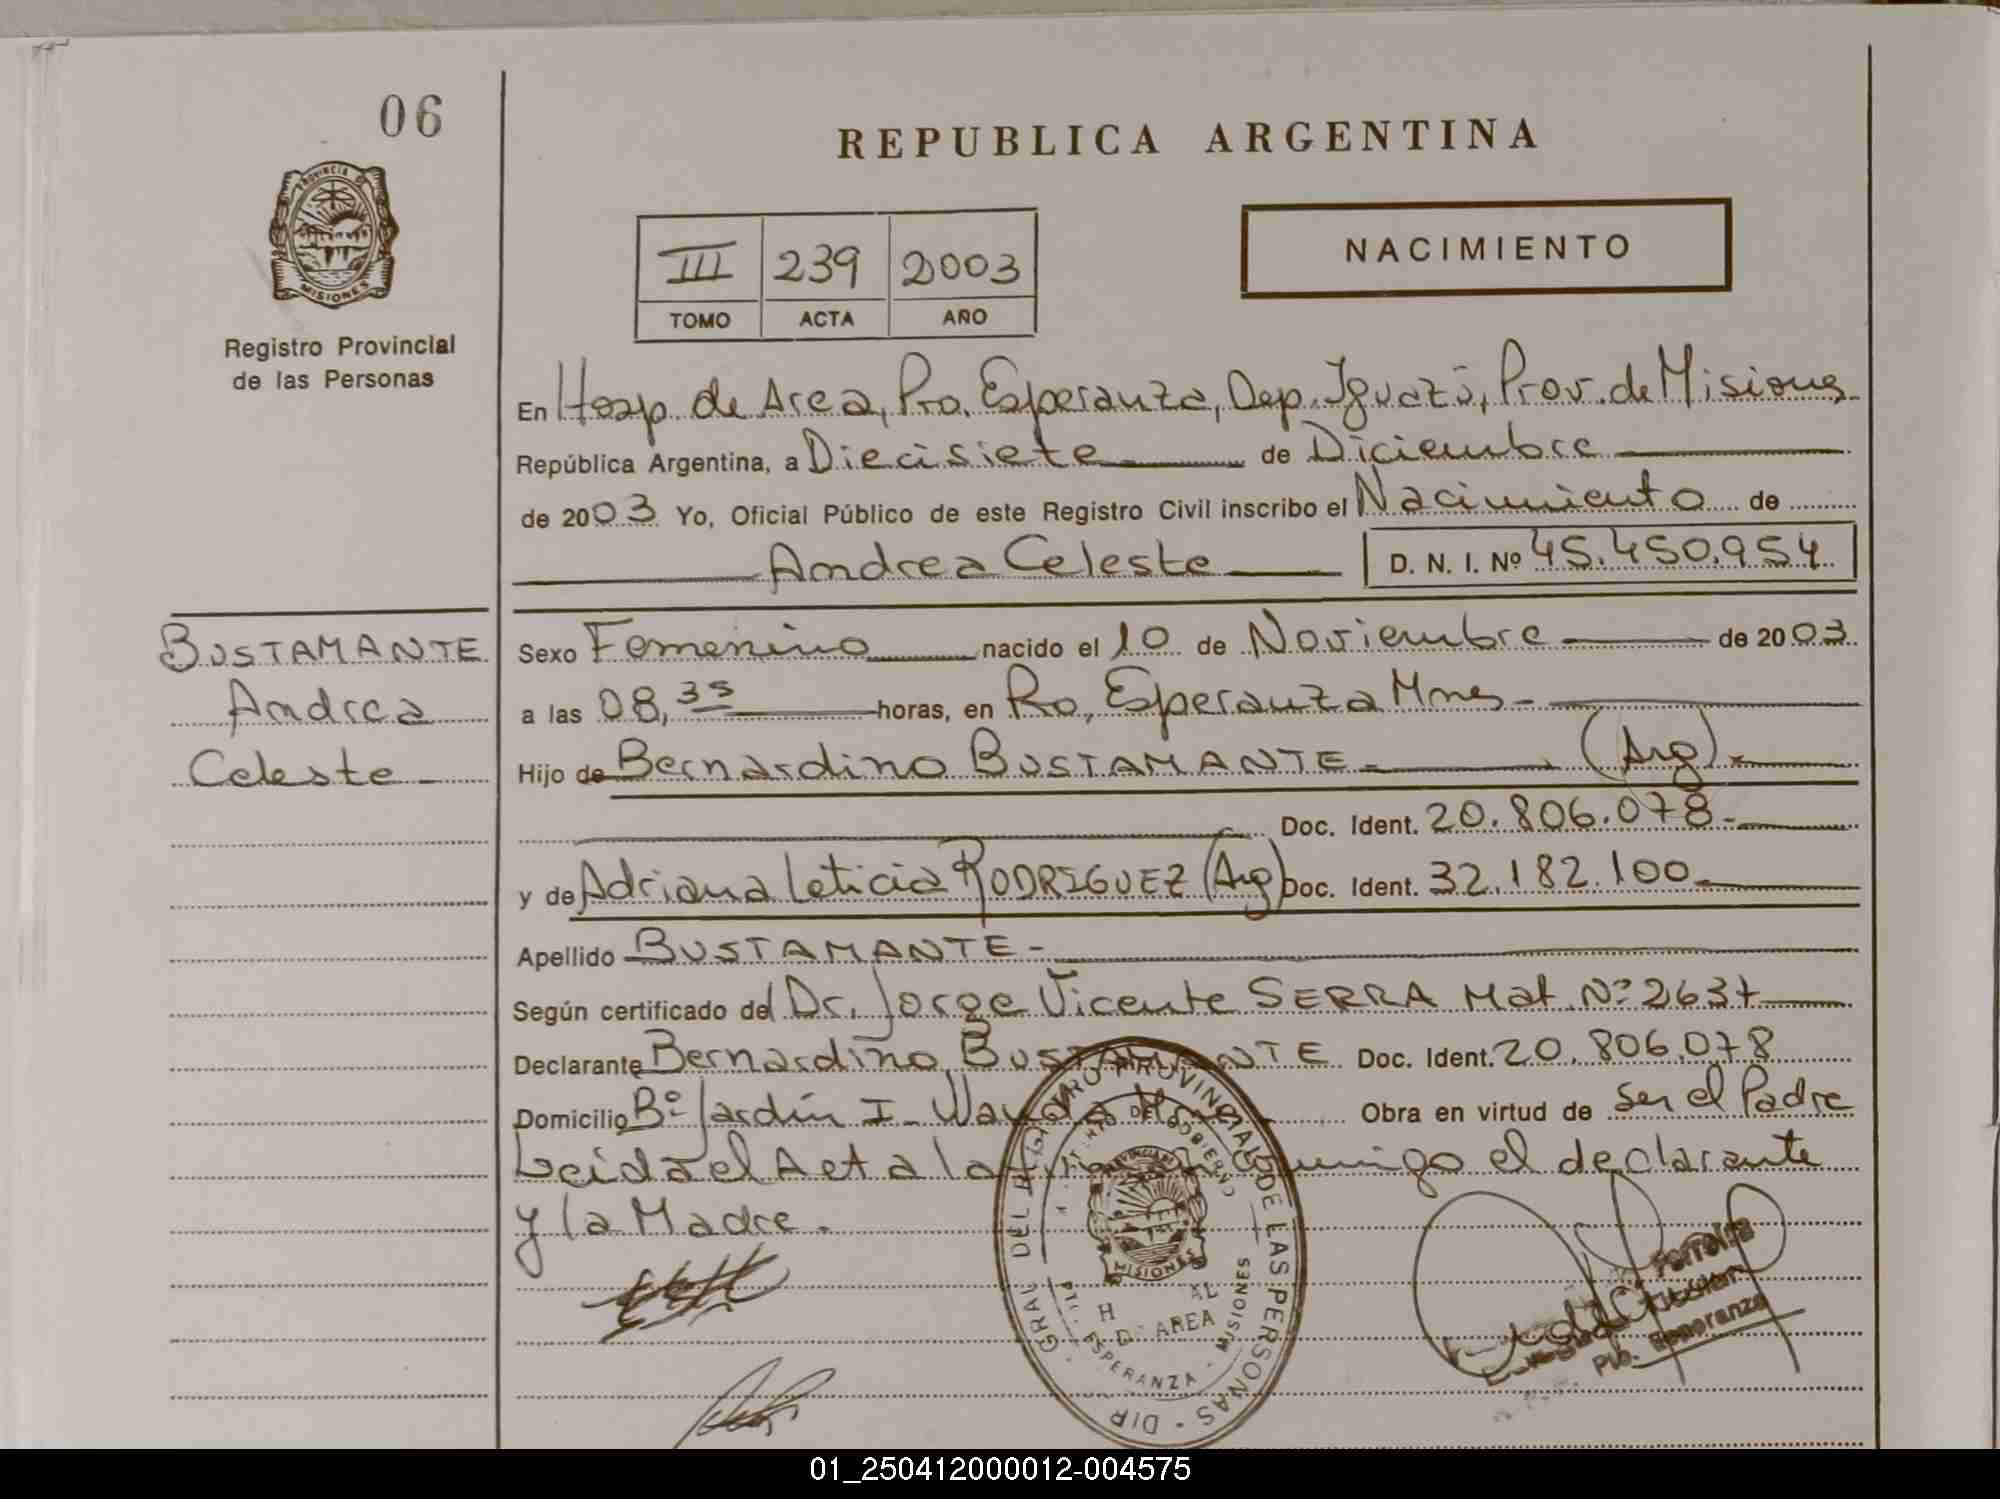 06
REPUBLICA ARGENTINA
PROVINCIA DE
MISIONES
Registro Provincial
de las Personas
NACIMIENTO
III 239 2003
TOMO ACTA AÑO
En Hosp. de Area, Pto. Esperanza, Dep. Iguazú, Prov. de Misiones
República Argentina, a Diecisiete de Diciembre
de 2003 Yo, Oficial Público de este Registro Civil inscribo el Nacimiento de
Andrea Celeste D. N. I. Nº 45.450.954
BUSTAMANTE
Andrea
Celeste
Sexo Femenino nacido el 10 de Noviembre de 2003
a las 08,35 horas, en Pto, Esperanza Mnes -
Hijo de Bernardino BUSTAMANTE - (Arg).-
Doc. Ident. 20.806.078-
y de Adriana Leticia RODRIGUEZ (Arg) Doc. Ident. 32.182.100-
Apellido BUSTAMANTE -
Según certificado del Dr. Jorge Vicente SERRA Mat. Nº 2637
Declarante Bernardino BUSTAMANTE Doc. Ident. 20.806.078
Domicilio Bº Jardín I - Wanda Obra en virtud de ser el Padre
Leida el Acta la conmigo el declarante
y la Madre.
DIR. GRAL. DEL REGISTRO PROVINCIAL DE LAS PERSONAS
GOBIERNO
MISIONES
AREA
ESPERANZA - MISIONES
Ferreira
Pto. Esperanza
01_250412000012-004575